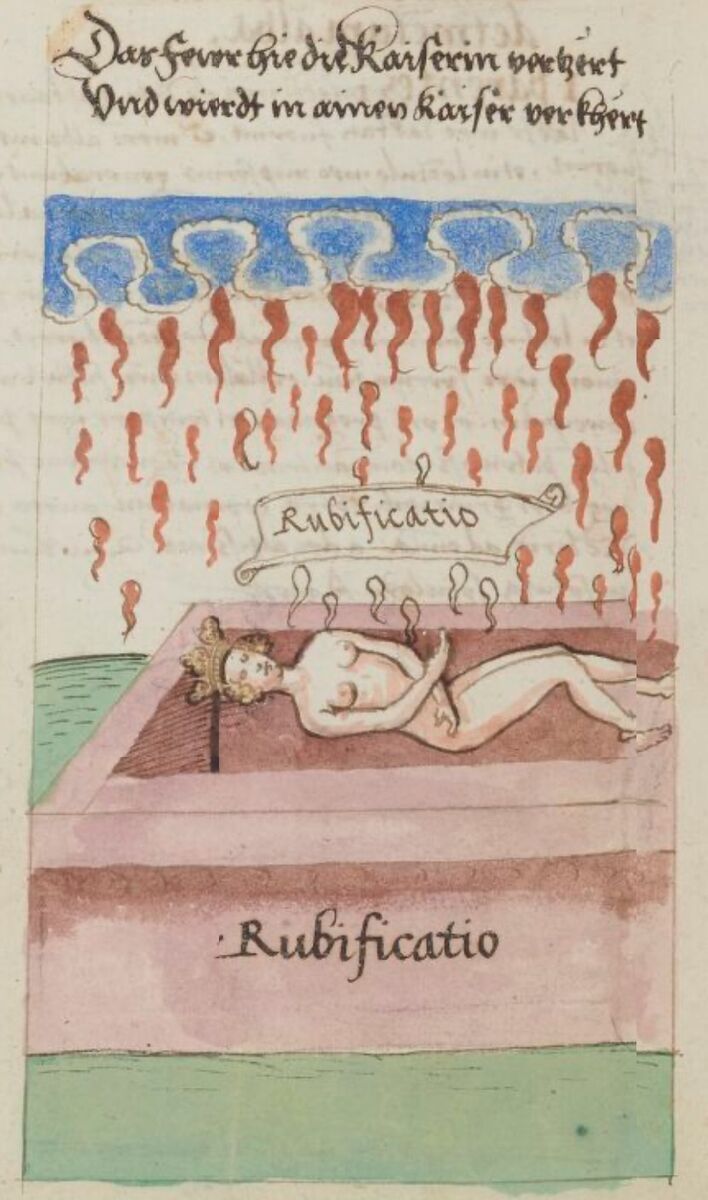 Das fewr hie die Kaiserin verzert
Vnd wierdt in ainen Kaiser verkhert
Rubificatio
Rubificatio